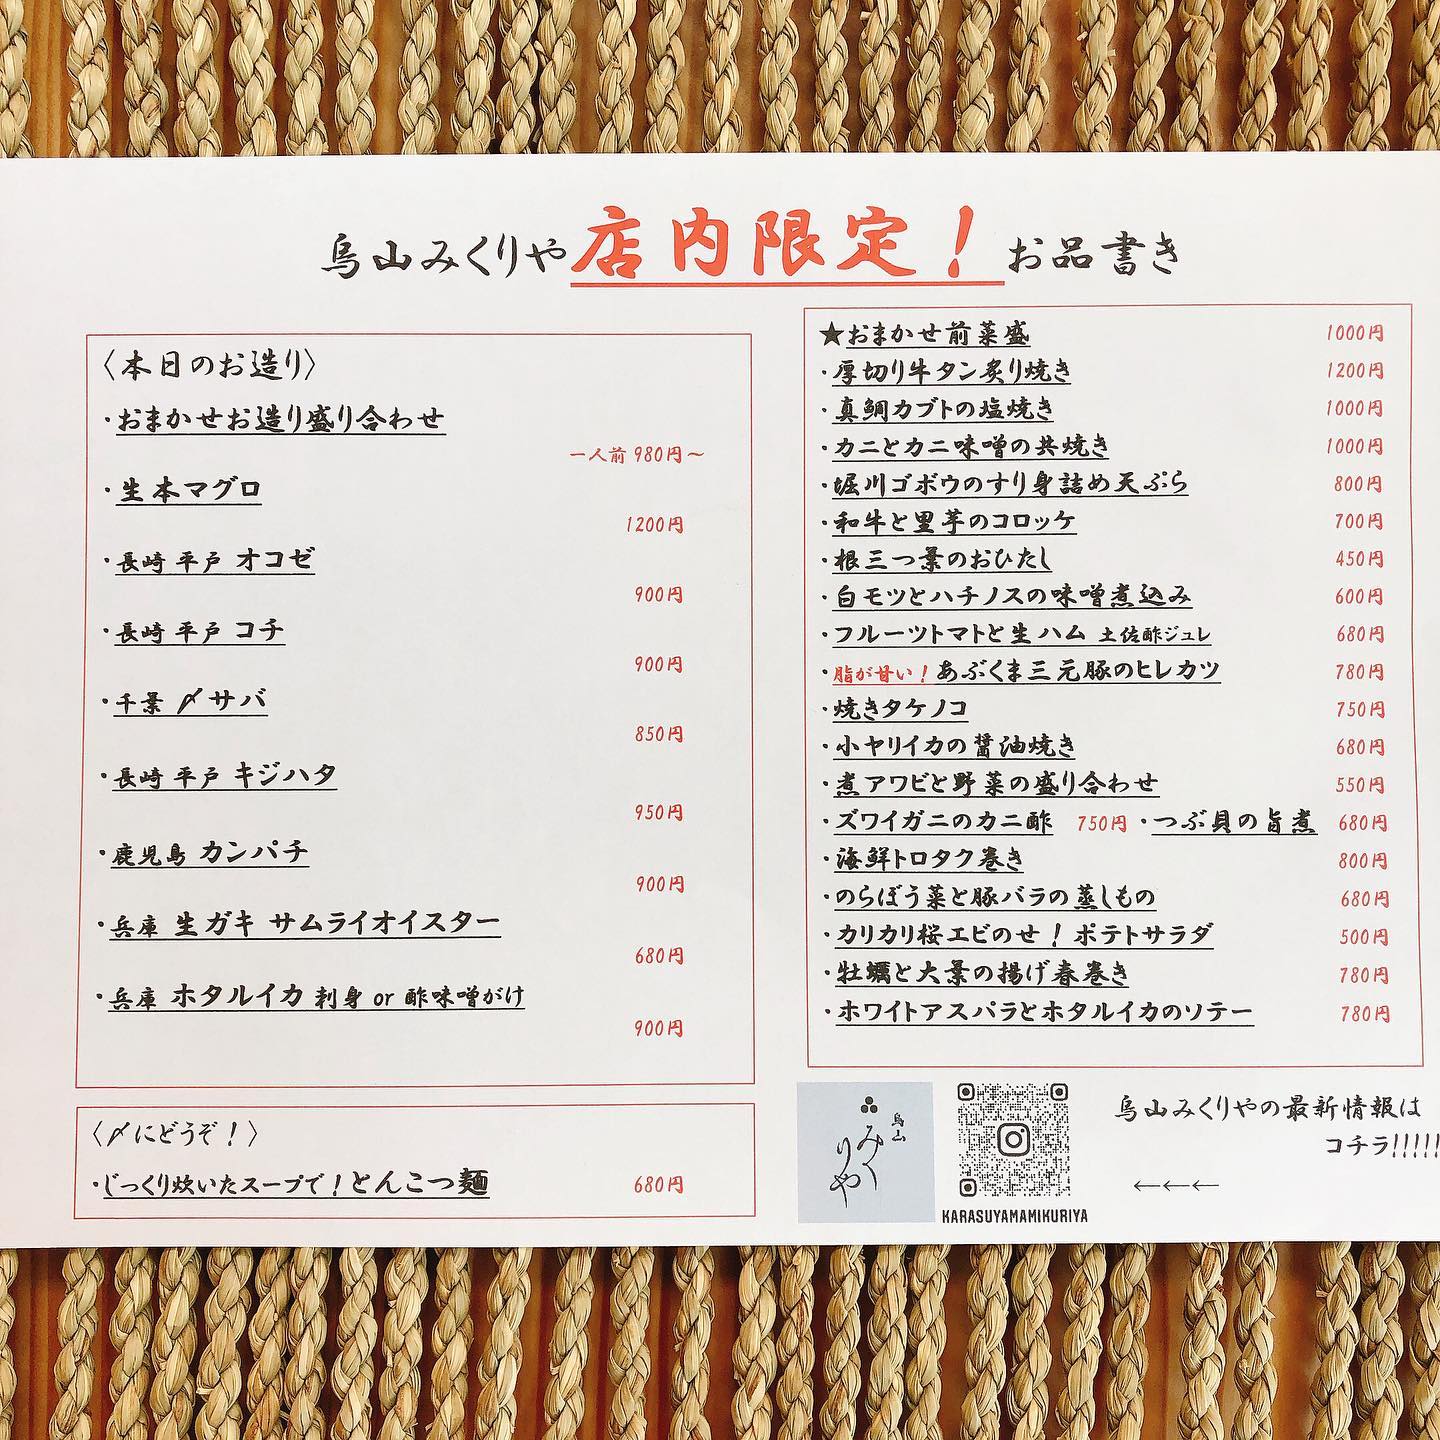 烏山みくりや店内限定！お品書き
〈本日のお造り〉
・おまかせお造り盛り合わせ
一人前 980円～
・生本マグロ
1200円
・長崎 平戸 オコゼ
900円
・長崎 平戸 コチ
900円
・千葉 〆サバ
850円
・長崎 平戸 キジハタ
950円
・鹿児島 カンパチ
900円
・兵庫 生ガキ サムライオイスター
680円
・兵庫 ホタルイカ 刺身 or 酢味噌がけ
900円
〈〆にどうぞ！〉
・じっくり炊いたスープで！とんこつ麺 680円
★おまかせ前菜盛 1000円
・厚切り牛タン炙り焼き 1200円
・真鯛カブトの塩焼き 1000円
・カニとカニ味噌の共焼き 1000円
・堀川ゴボウのすり身詰め天ぷら 800円
・和牛と里芋のコロッケ 700円
・根三つ葉のおひたし 450円
・白モツとハチノスの味噌煮込み 600円
・フルーツトマトと生ハム 土佐酢ジュレ 680円
・脂が甘い！あぶくま三元豚のヒレカツ 780円
・焼きタケノコ 750円
・小ヤリイカの醤油焼き 680円
・煮アワビと野菜の盛り合わせ 550円
・ズワイガニのカニ酢 750円 ・つぶ貝の旨煮 680円
・海鮮トロタク巻き 800円
・のらぼう菜と豚バラの蒸しもの 680円
・カリカリ桜エビのせ！ポテトサラダ 500円
・牡蠣と大葉の揚げ春巻き 780円
・ホワイトアスパラとホタルイカのソテー 780円
烏山
みく
りや
KARASUYAMAMIKURIYA
烏山みくりやの最新情報は
コチラ!!!!!
←←←